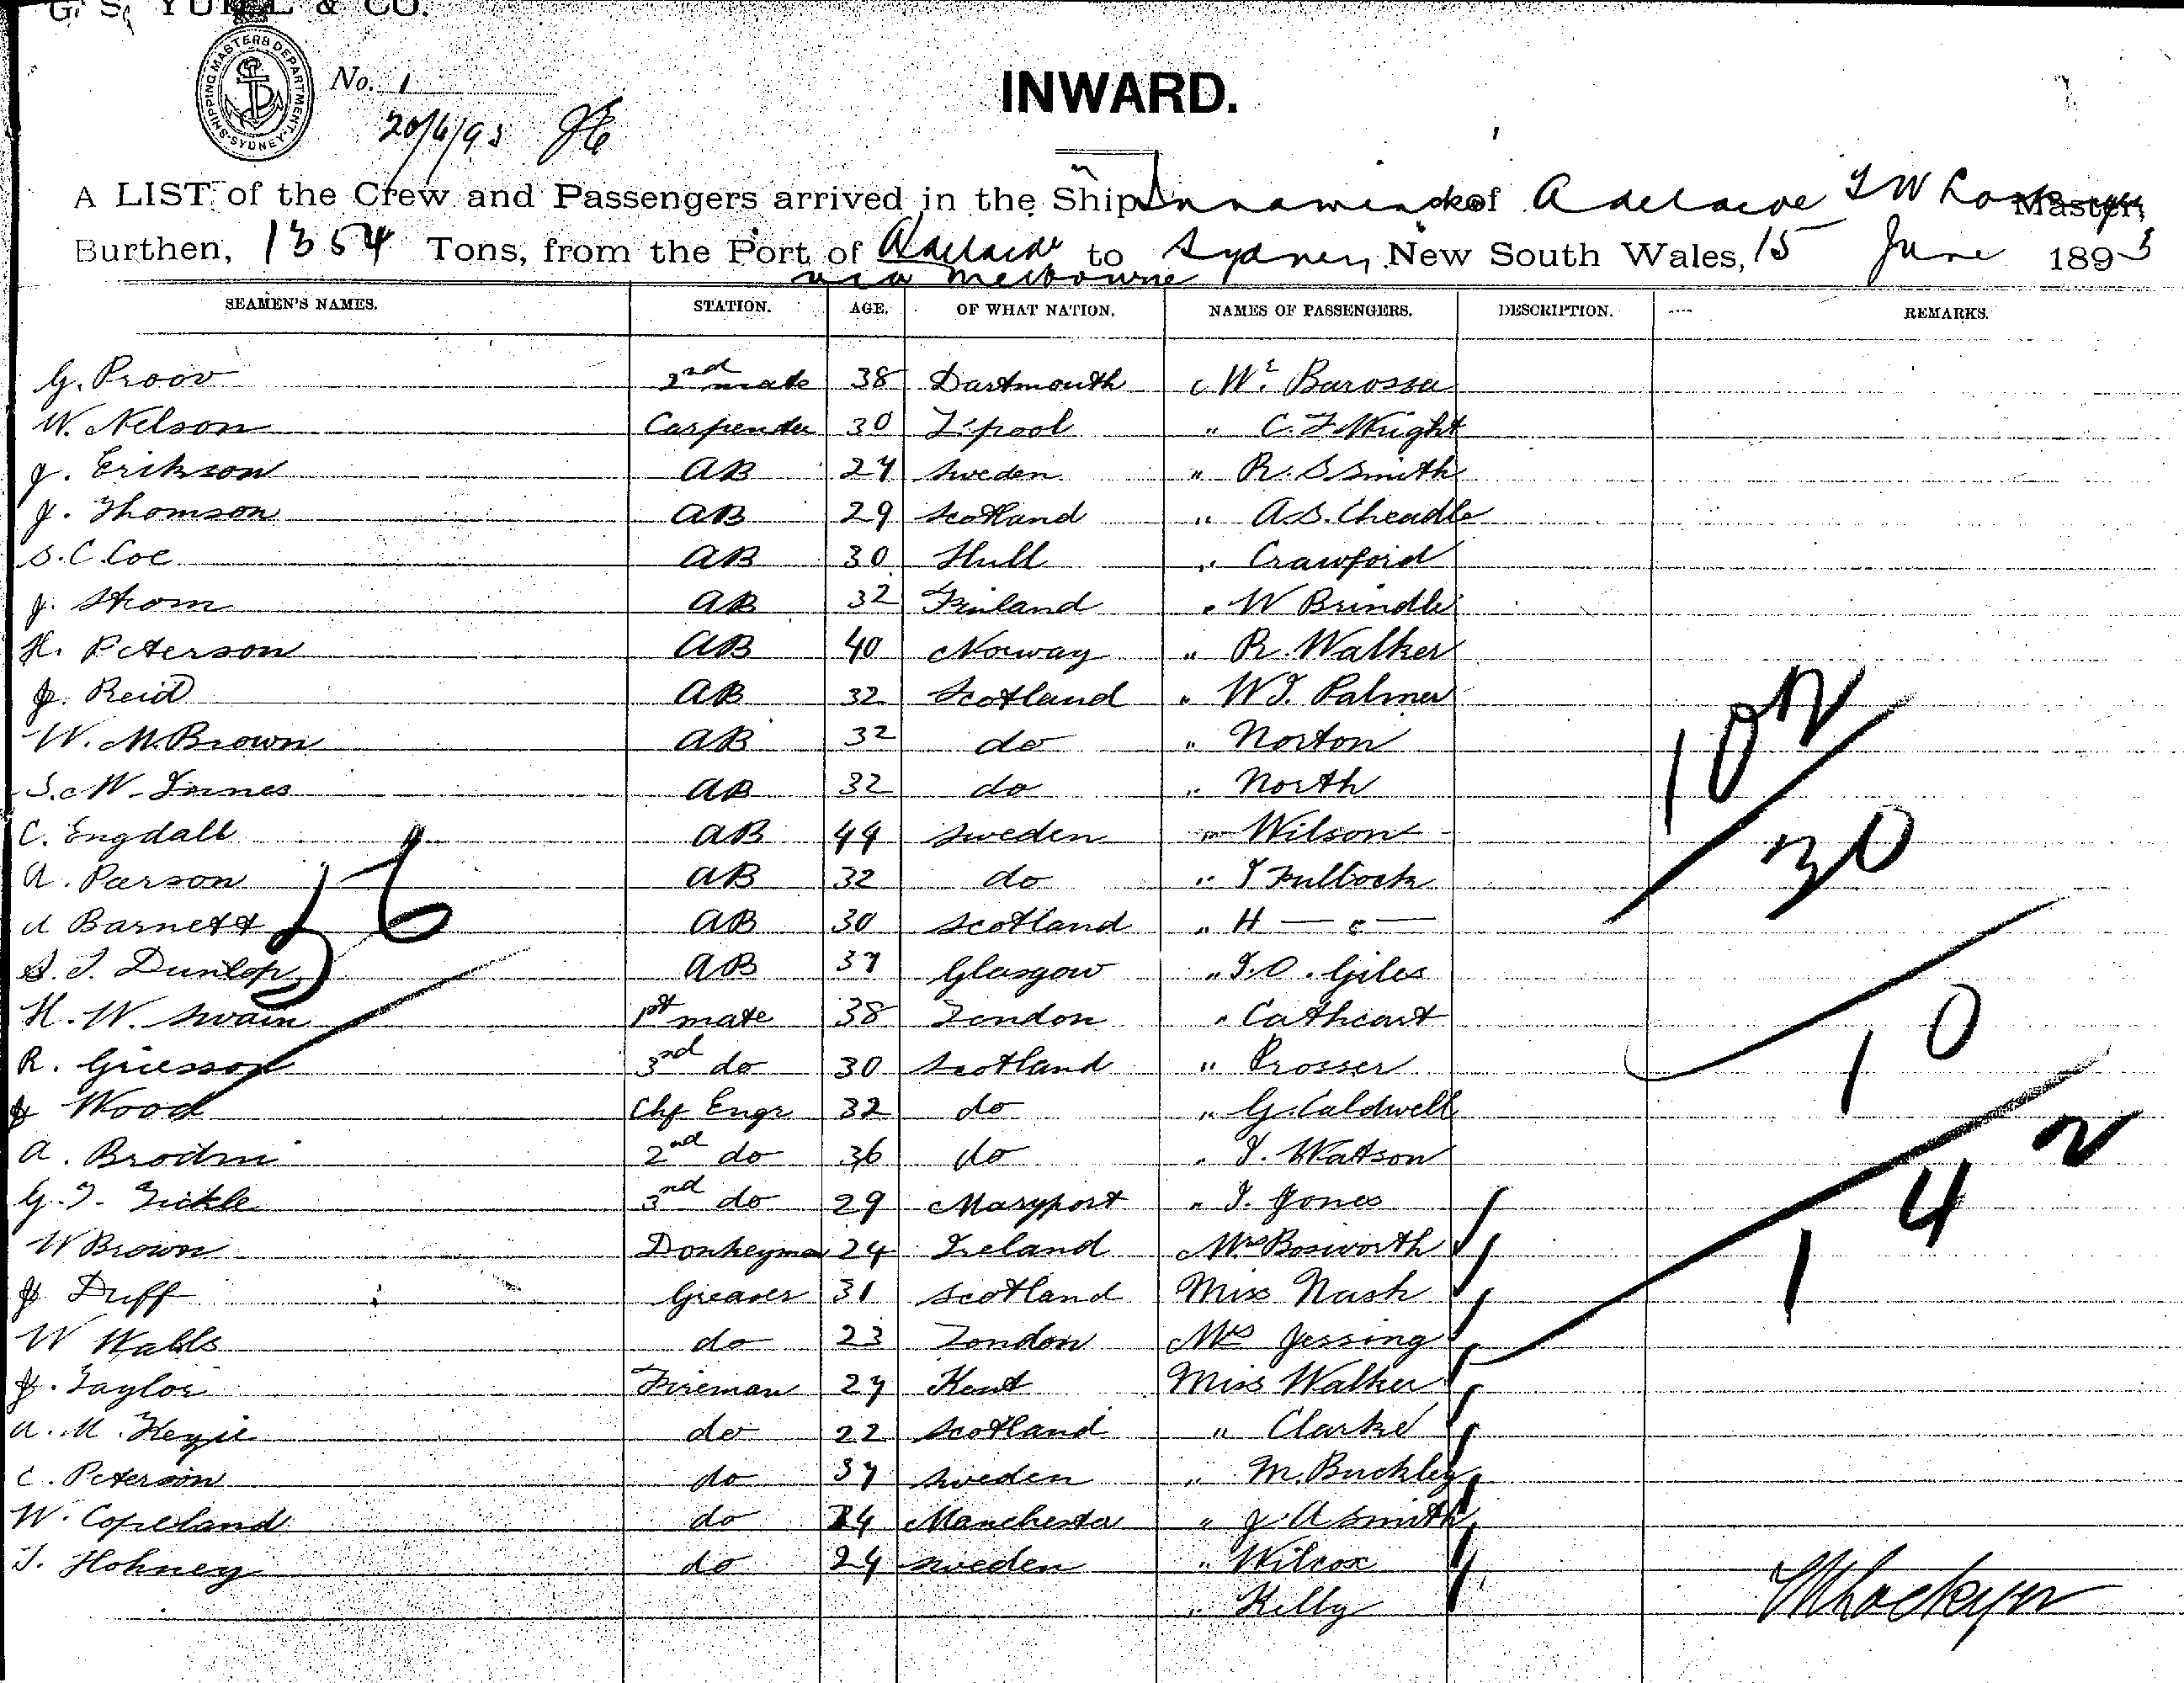 G. S. YUILL & CO.
SHIPPING MASTERS DEPARTMENT SYDNEY
No. 1
20/6/93
INWARD.
A LIST of the Crew and Passengers arrived in the Ship Innamincka of Adelaide T W Lockyer Master,
Burthen, 1354 Tons, from the Port of Adelaide to Sydney, New South Wales, 15 June 1893
via Melbourne
SEAMEN'S NAMES. STATION. AGE. OF WHAT NATION. NAMES OF PASSENGERS. DESCRIPTION. REMARKS.
G. Proov 2nd mate 38 Dartmouth Mr. Barossa
W. Nelson Carpenter 30 L'pool " C. F. Wright
J. Erikson AB 24 Sweden " R. S Smith
J. Thomson AB 29 Scotland " A.S. Cheadle
S. C. Coe AB 30 Hull " Crawford
J. Strom AB 32 Finland " W Brindle
H. Peterson AB 40 Norway " R. Walker
J. Reid AB 32 Scotland " W J. Palmer
W. M. Brown AB 32 do " Norton
AB 32 do " North
C. Engdall AB 44 Sweden " Wilson
A. Parson AB 32 do " J Fullock
A Barnett AB 30 Scotland " H — " —
S. J. Dunlop AB 37 Glasgow " J. O. Giles
H. W. Swain 1st mate 38 London " Cathcart
R. Griesson 3rd do 30 Scotland " Prosser
J Wood Chf Engr 32 do " G. Caldwell
A. Brodin 2nd do 36 do " J. Watson
G. T. Tickle 3rd do 29 Maryport " J. Jones
W Brown Donkeyman 24 Ireland Mrs Bosworth
J Duff Greaser 31 Scotland Miss Nash
W Walls do 23 London Mrs Jessing
J. Taylor Fireman 27 Kent Miss Walker
A. M. Kezie do 22 Scotland " Clarke
C. Peterson do 37 Sweden " M. Buckley
W. Copeland do 24 Manchester " J. A Smith
J. Hohney do 24 Sweden " Wilcox
" Kelly
36
102
30
10
142
TW Lockyer